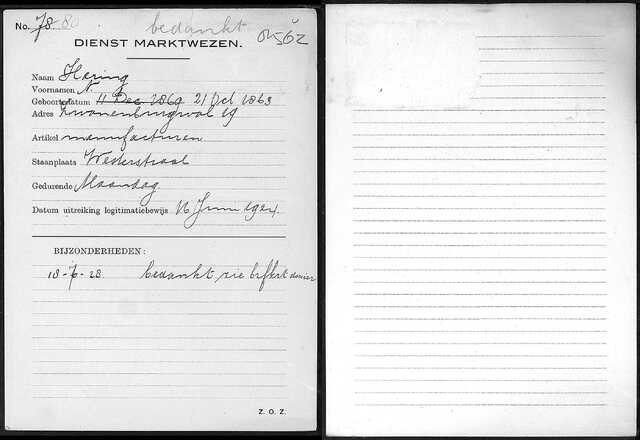 No. 78-80 bedankt
DIENST MARKTWEZEN.
Naam Hering
Voornamen N.
Geboortedatum 11 Dec 1869 21 Oct 1863
Adres Zwanenburgwal 29
Artikel manufacturen
Staanplaats Westerstraat
Gedurende Maandag
Datum uitreiking legitimatiebewijs 16 Juni 1921.
BIJZONDERHEDEN:
18-6-28 bedankt zie dossier
Z. O. Z.